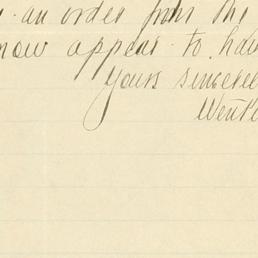 an order from the
now appear to have
Yours sincerel